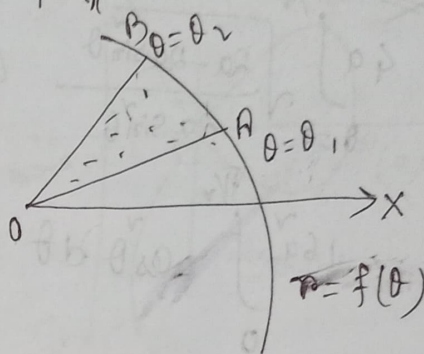 B θ = θ₂
A
θ = θ₁
O
X
r = f(θ)